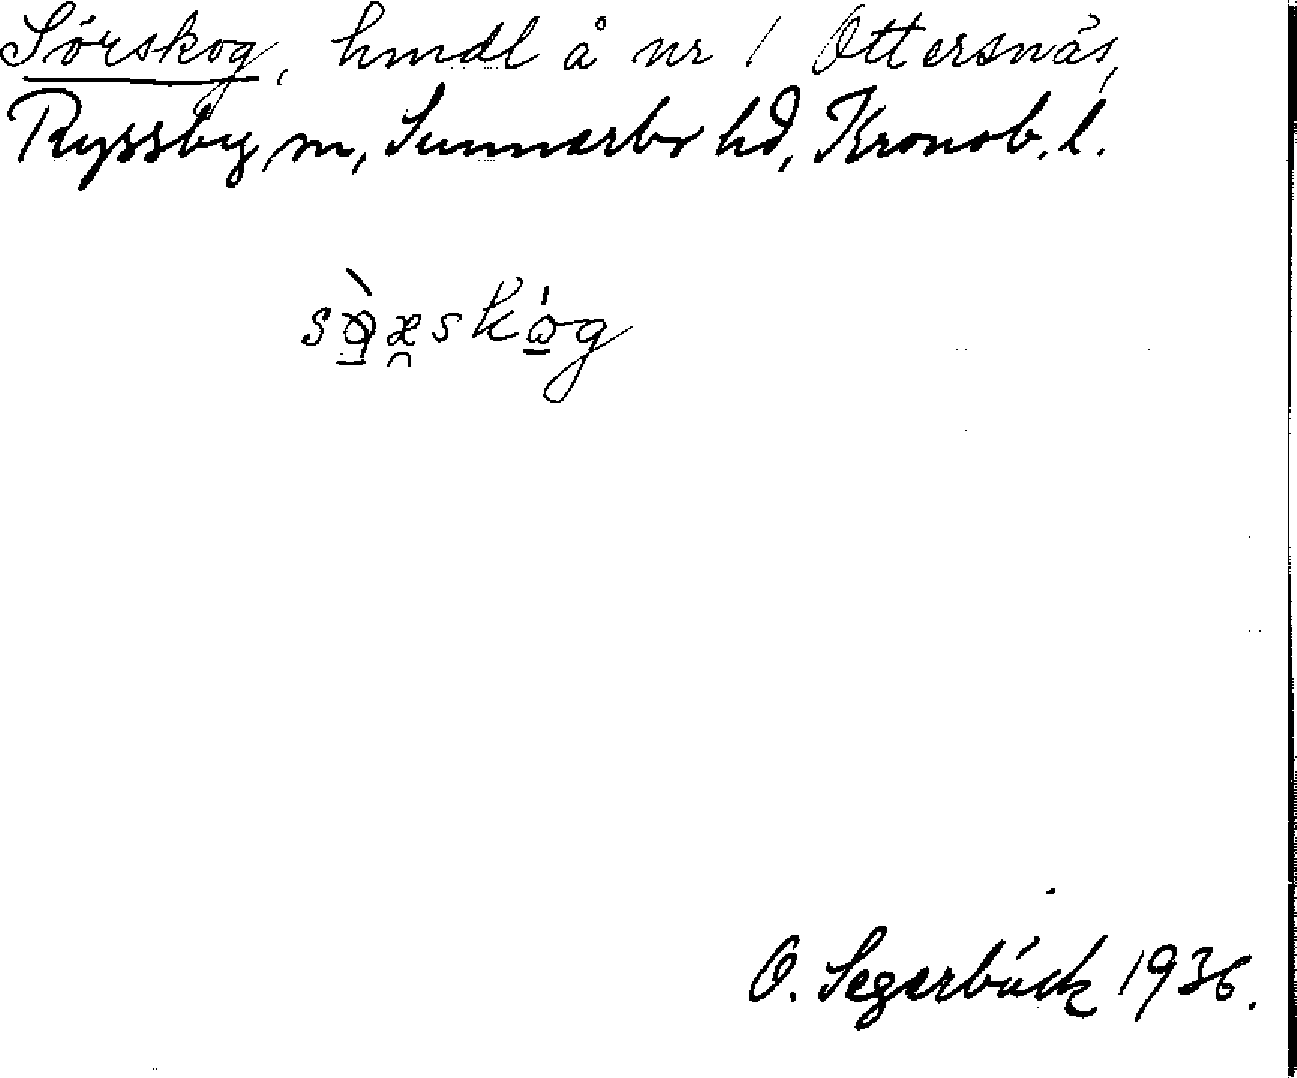 Sörskog, hmdl å nr 1 Ottersnäs,
Ryssby sn, Sunnerbo hd, Kronob. l.
O. Segerbäck 1936.